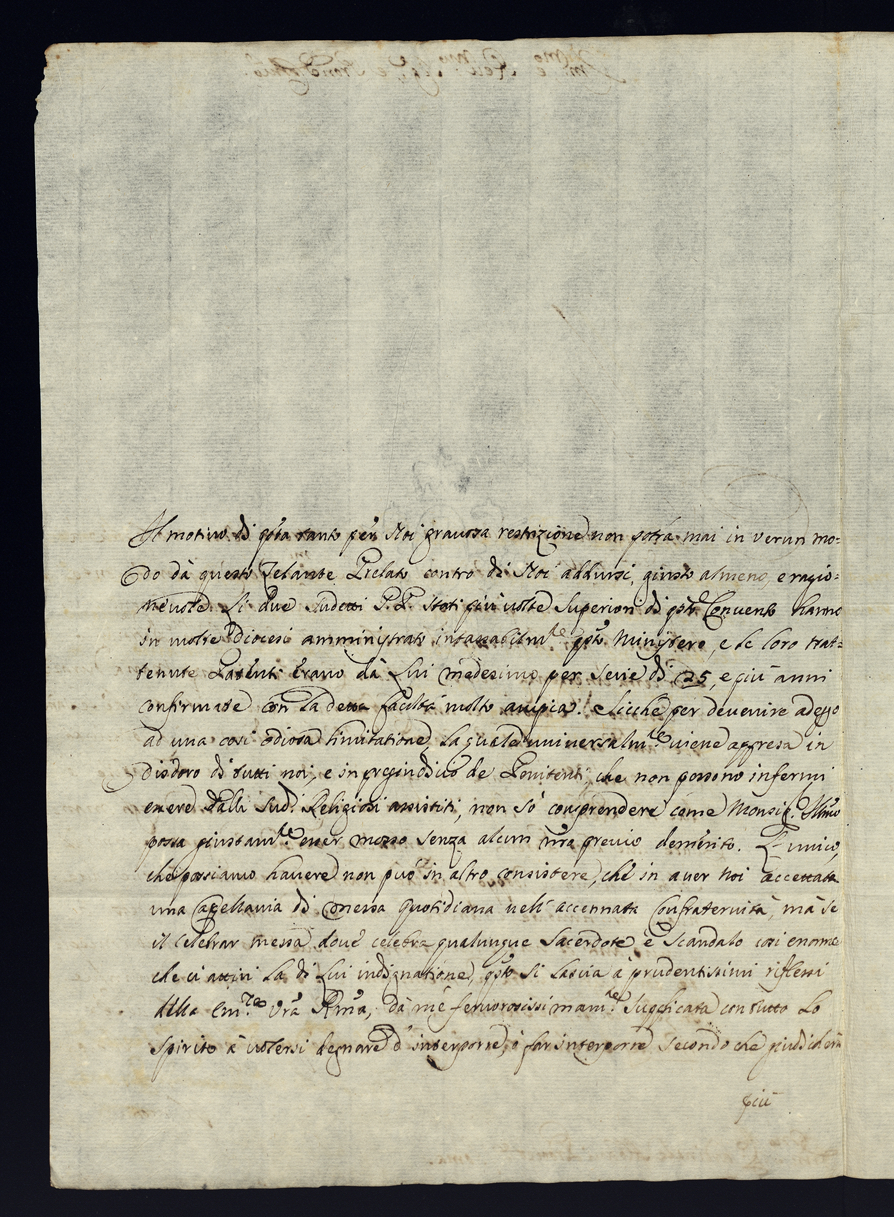 Il motivo di qsta tanto per Noi gravosa restrizione non potrà mai in verun mo-
do dà questo Zelante Prelato contro di Noi addursi, giusto almeno, e ragio-
nevole. Li due sudetti P.P. stati più volte Superiori di qsto Convento hanno
in molte Diocesi amministrato intassabilmte qsto Ministero, e le loro trat-
tenute Patenti erano dà Lui medesimo per serie di 25, e più anni
confirmate con la detta facoltà molto ampia. Sicche per devenire adesso
ad una cosi odiosa limitatione, la quale universalmte viene appresa in
disdoro di tutti noi, e in pregiudicio de Penitenti, che non possono infermi
essere dalli sudi Religiosi assistiti, non sò comprendere come Monsigr Illmo
possa giustamte esser mosso senza alcun nro previo demerito. L'unico,
che possiamo havere non può in altro consistere, che in aver Noi accettata
una Capellania di Messa quotidiana nell' accennata Confraternità, mà se
il celebrar messa dove celebra qualunque Sacerdote è scandalo cosi enorme
che ci attiri la di Lui indignatione, qsto si lascia à prudentissimi riflessi
della Emza Vra Rma, dà mè fervorosissimamte suplicata con tutto lo
spirito à volersi degnare d' interporre, ò far interporre secondo che giudicherà
più